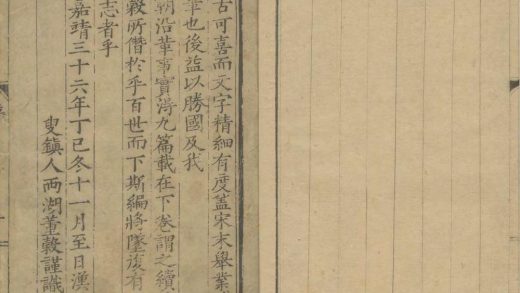 古可喜而文字精細有度蓋宋末舉業
筆也後益以勝國及我
朝沿革事實得九篇載在下卷謂之續
穀所僭於乎百世而下斯編將墜復有
志者乎
嘉靖三十六年丁巳冬十一月至日漢
叟鎮人西湖董穀謹識